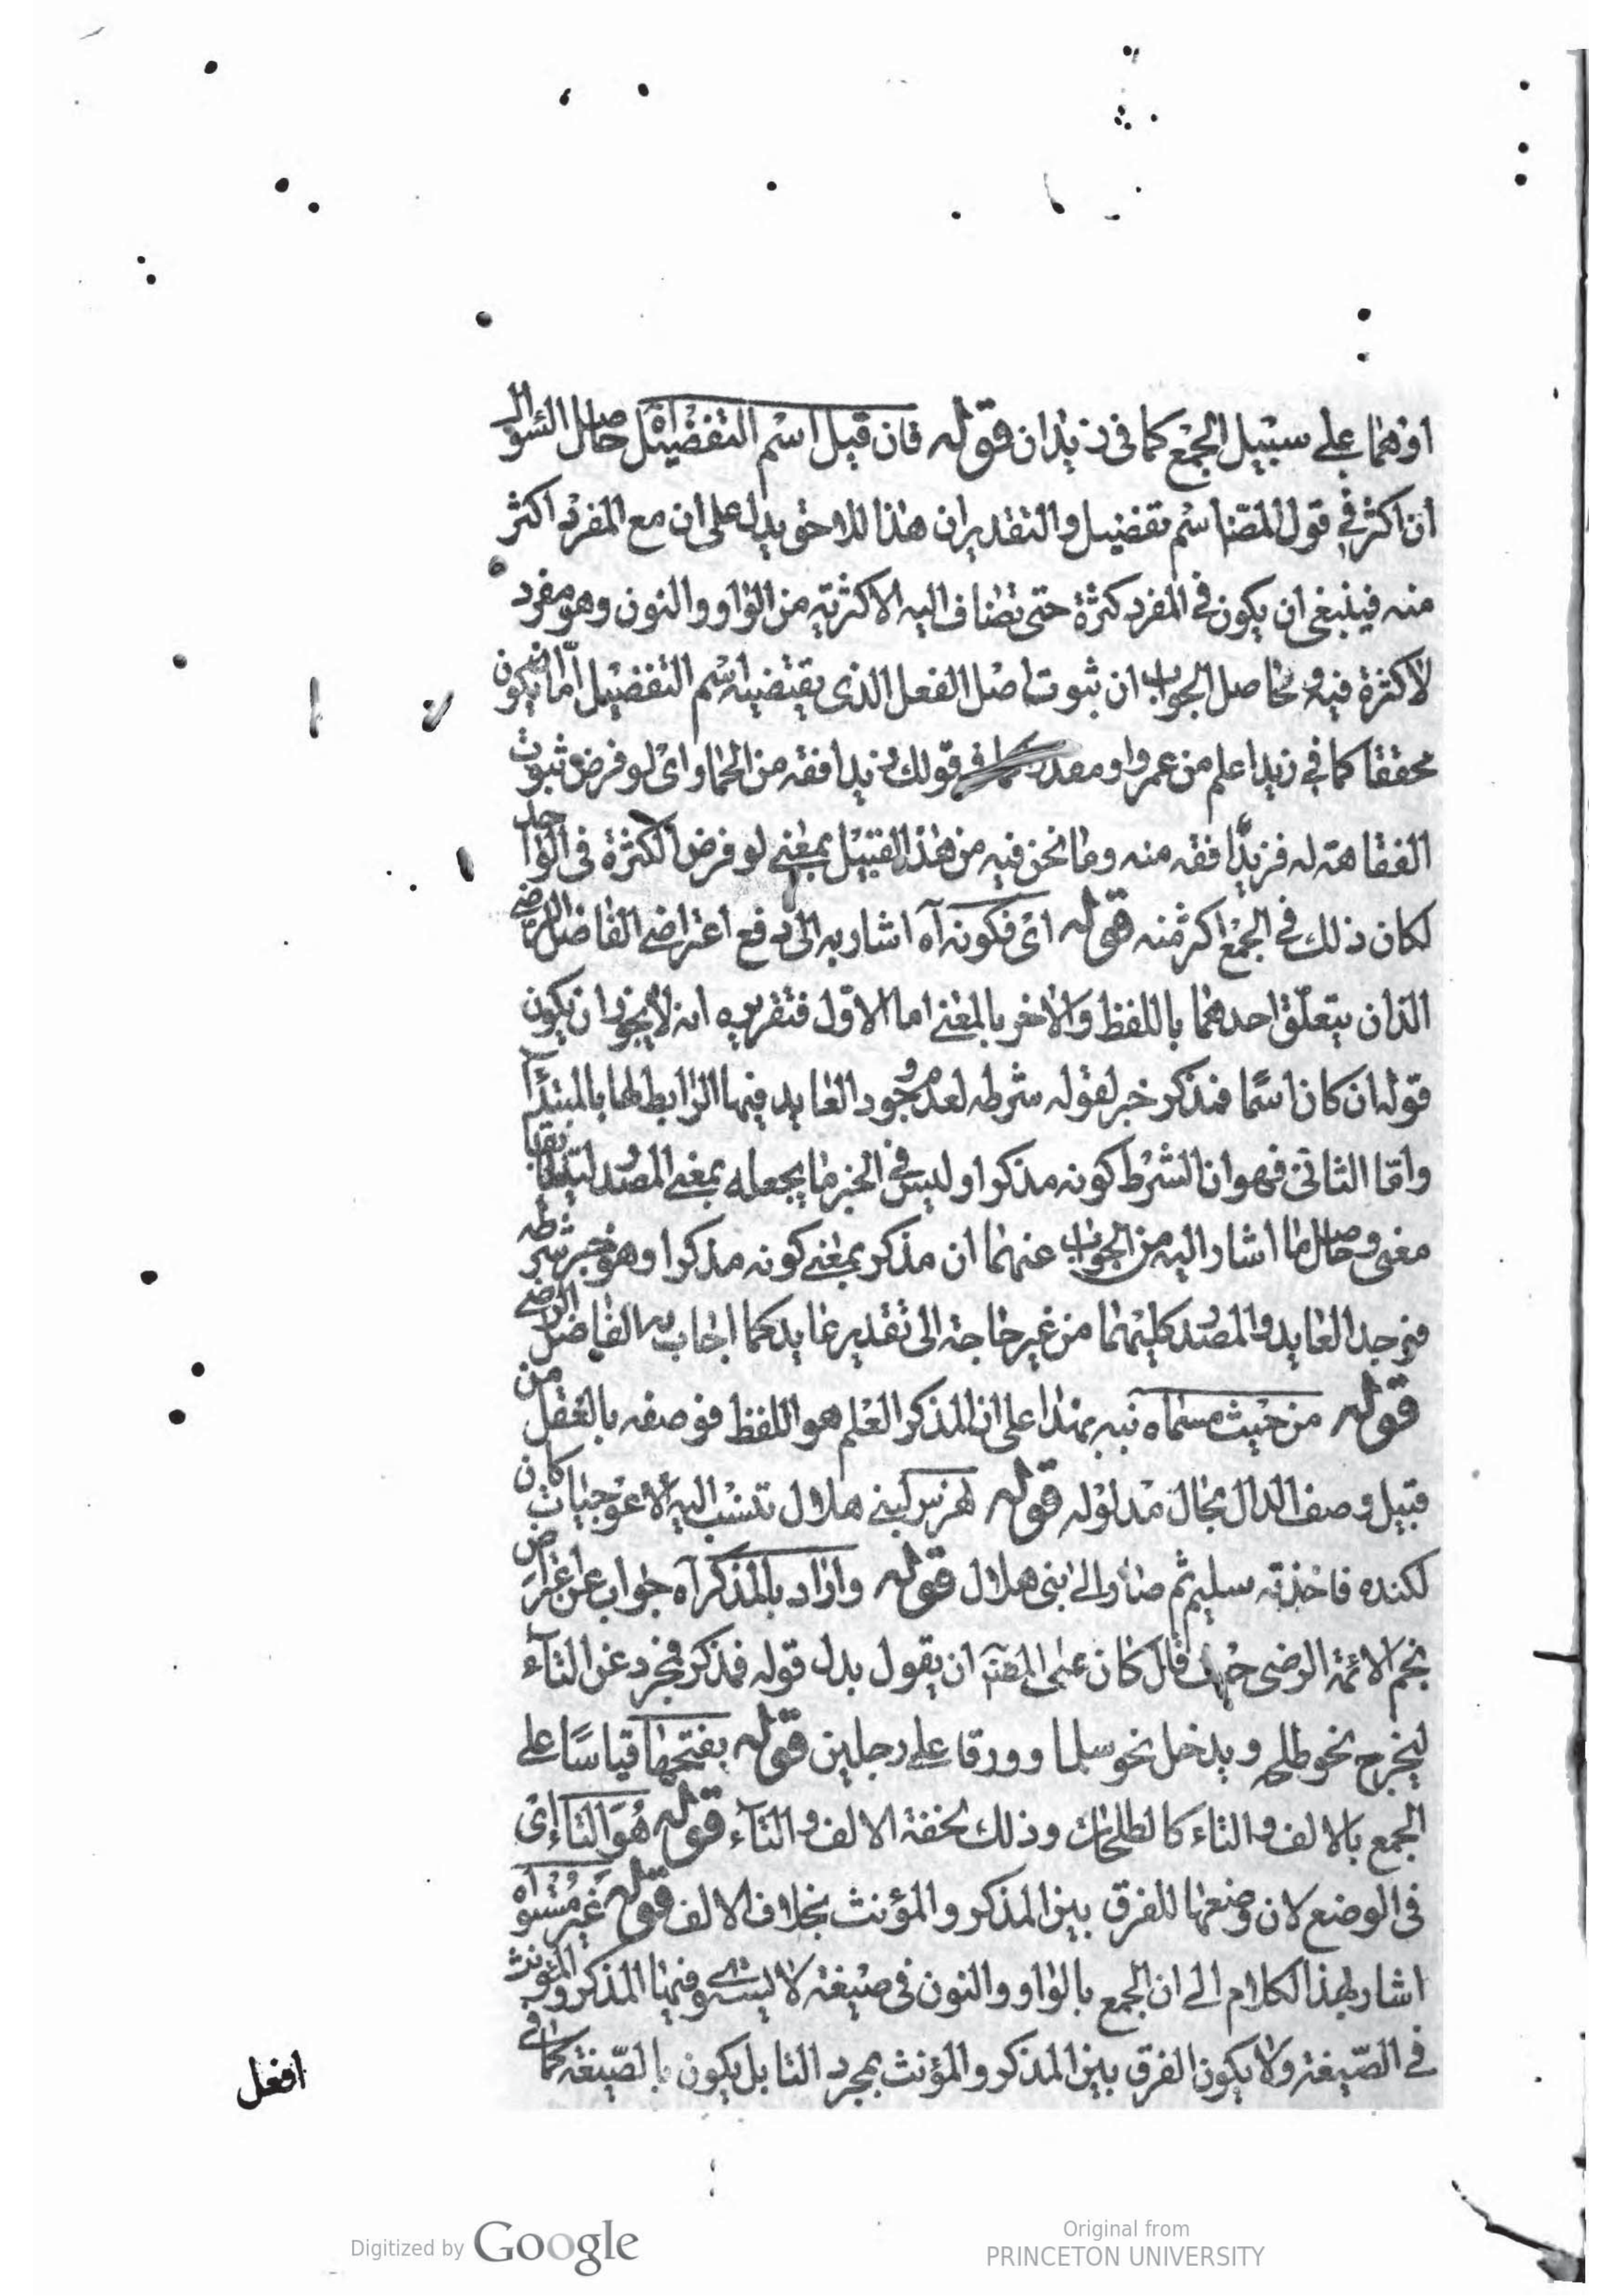 اوزهما على سبيل الجمع كما فى زيدان قوله فان قيل اسم التفضيل اه حاصل السوال
ان اكثر فى قول المصنا اسم تفضيل والتقدير ان هذا اللاحق يدل على ان مع المفرد اكثر
منه فينبغى ان يكون فى المفرد كثرة حتى تضاف اليه الاكثرية من الواو والنون وهو مفرد
لا كثرة فيه وحاصل الجواب ان ثبوت اصل الفعل الذى يقتضيه اسم التفضيل اما ان يكون
محققا كما فى زيد اعلم من عمرو او مقدرا كما فى قولك زيد افقه من الحمار اى لو فرض ثبوت
الفقاهة له فزيد افقه منه وما نحن فيه من هذا القبيل بمعنى لو فرض الكثرة فى الواحد
لكان ذلك فى الجمع اكثر منه قوله اى فكونه آه اشار به الى دفع اعتراضى الفاضل الرضى
الذان يتعلق احدهما باللفظ والاخر بالمعنى اما الاول فتقريره انه لا يجوز ان يكون
قوله ان كان اسما فمذكر خبر لقوله شرطه لعدم وجود العايد فيها الرابط لها بالمبتدأ
واما الثانى فهو ان الشرط كونه مذكرا وليس فى الخبر ما يجعله بمعنى المصدر ليتطابقا
معنى وحاصل ما اشار اليه من الجواب عنهما ان مذكر بمعنى كونه مذكرا وهو خبر شرطه
فوجد العايد والمصدر كليهما من غير حاجة الى تقدير عايد كما اجاب به الفاضل الرضى
قوله من حيث مسماه نبه بهذا على ان المذكر العلم هو اللفظ فوصفه بالعقل من
قبيل وصف الدال بحال مدلوله قوله لهزس لبنى هلال تنسب اليه الاعوجيات كان
لكنده فاخذته سليم ثم صار الى بنى هلال قوله واراد بالمذكر آه جواب عن اعتراض
نجم الائمة الرضى حيث قال كان على المصنا ان يقول بدل قوله فمذكر فمجرد عن التاء
ليخرج نحو طلحه ويدخل نحو سلما وورقا على رجلين قوله بفتحها قياسا على
الجمع بالالف والتاء كالطلحات وذلك لخفة الالف والتآء قوله هو التاء اى
فى الوضع لان وضعها للفرق بين المذكر والمؤنث بخلاف الالف قوله غير مستو اه
اشار بهذا الكلام الى ان الجمع بالواو والنون فى صيغة لا يستوى فيها المذكر والمؤنث
فى الصيغة ولا يكون الفرق بين المذكر والمؤنث بمجرد التا بل يكون بالصيغة كما فى
افعل
Digitized by Google
Original from
PRINCETON UNIVERSITY